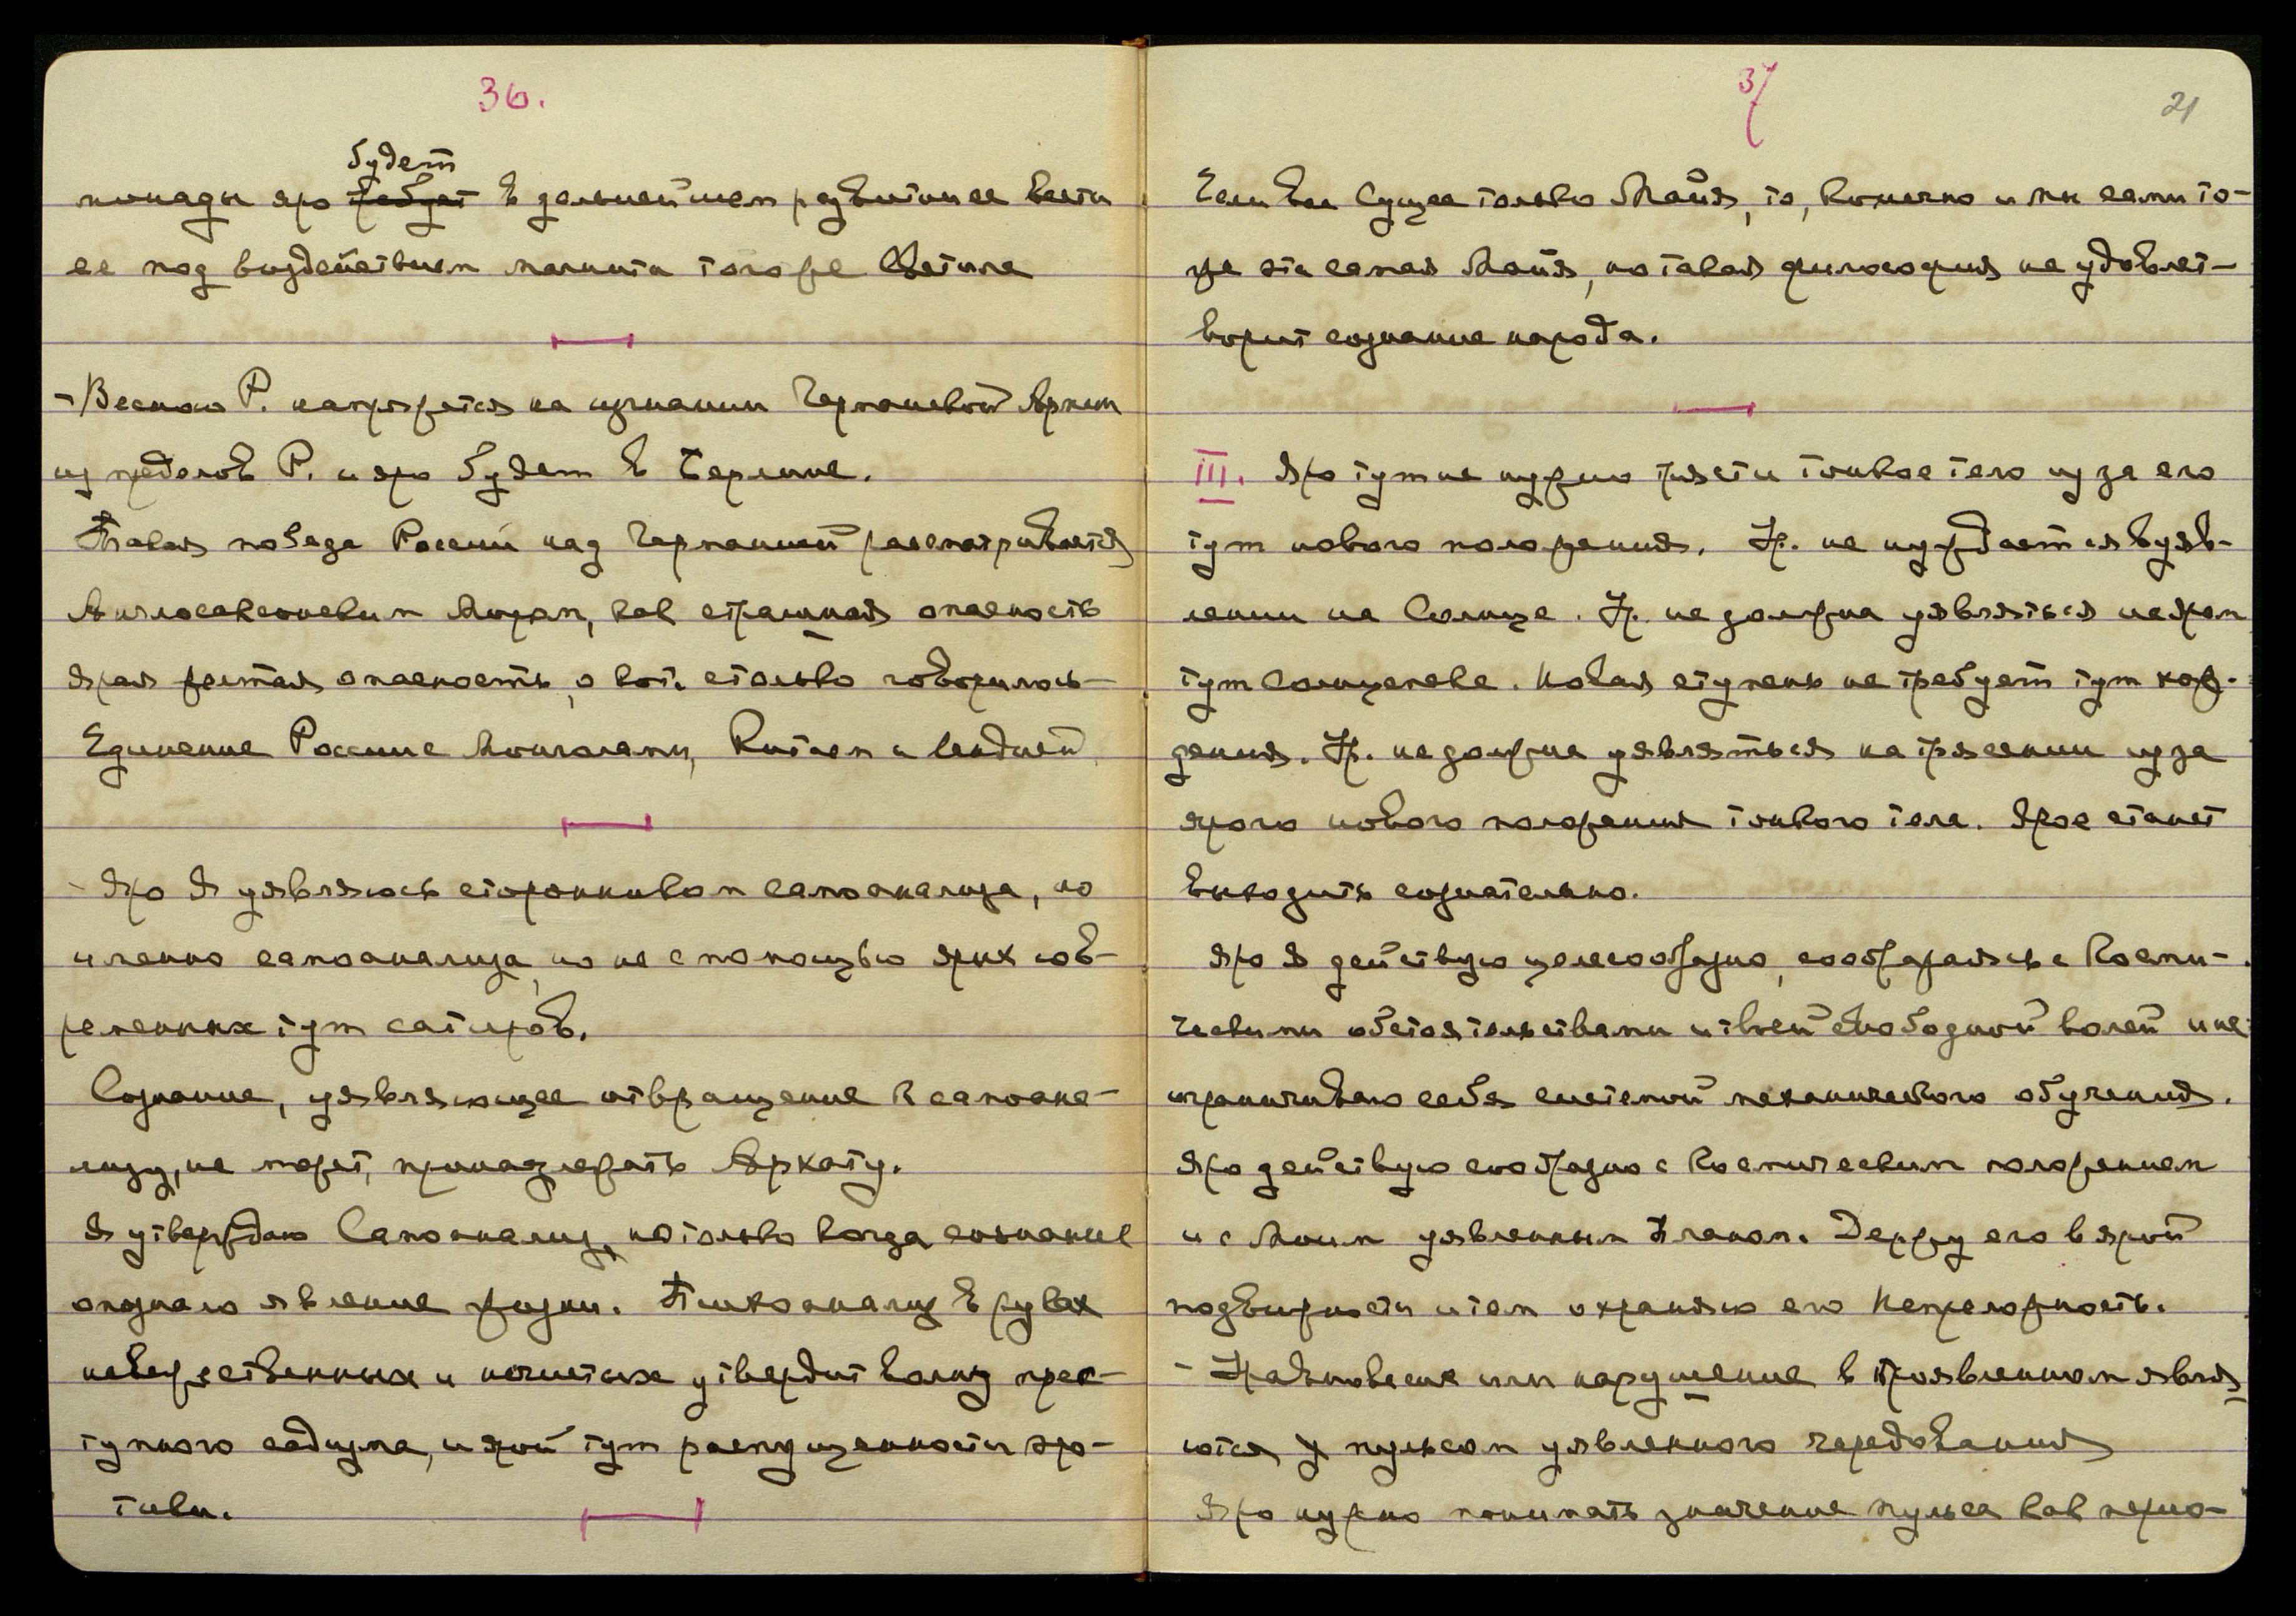 36.
будет
монады яро требует в дальнейшем развитии вести
ее под воздействием магнита того же Светила
- Весною Р. напряжется на изгнании Германской Армии
из пределов Р. и яро будет в Берлине.
Такая победа России над Германией рассматривается
Англосаксонским Миром, как страшная опасность
ярая желтая опасность, о кот. столько говорилось -
Единение России с Монголами, Китаем и Индией
- Яро Я уявляюсь сторонником самоанализа, но
именно самоанализа, но не с помощью ярых сов-
ременных тут сатиров.
Сознание, уявляющее отвращение к самоана-
лизу, не может, принадлежать Архату.
Я утверждаю Самоанализ, но только когда сознание
опознало явление жизни. Психоанализ в руках
невежественных и нечистых утвердит волну прес-
тупного садизма, и ярой тут распущенности эро-
тики.
37
21
Если все Сущее только Майя, то, конечно и мы сами то-
же эта самая Майя, но такая философия не удовлет-
ворит сознание народа.
III. Яро тут не нужно трясти тонкое тело из за его
тут нового положения. Ур. не нуждается в уяв-
лении на Солнце. Ур. не должна уявляться на яром
тут Солнцепеке. Новая ступень не требует тут хож-
дения. Ур. не должна уявляться на трясении из за
ярого нового положения тонкого тела. Ярое станет
выходить сознательно.
Яро Я действую целесообразно, соображаясь с Косми-
ческими обстоятельствами и твоей свободной волей и не
ограничиваю себя системой механического обучения.
Яро действую сообразно с Космическим положением
и с Моим уявленным Планом. Держу его в ярой
подвижности и тем охраняю его Непреложность.
- Равновесие или нарушение в проявленном явля
ются у пульсом уявленного чередования
Яро нужно понимать значение пульса как перио-